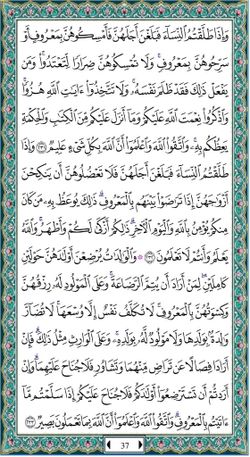 وَإِذَا طَلَّقْتُمُ ٱلنِّسَآءَ فَبَلَغْنَ أَجَلَهُنَّ فَأَمْسِكُوهُنَّ بِمَعْرُوفٍ أَوْ
سَرِّحُوهُنَّ بِمَعْرُوفٍ ۚ وَلَا تُمْسِكُوهُنَّ ضِرَارًا لِّتَعْتَدُوا۟ ۚ وَمَن
يَفْعَلْ ذَٰلِكَ فَقَدْ ظَلَمَ نَفْسَهُۥ ۚ وَلَا تَتَّخِذُوٓا۟ ءَايَٰتِ ٱللَّهِ هُزُوًا ۚ
وَٱذْكُرُوا۟ نِعْمَتَ ٱللَّهِ عَلَيْكُمْ وَمَآ أَنزَلَ عَلَيْكُم مِّنَ ٱلْكِتَٰبِ وَٱلْحِكْمَةِ
يَعِظُكُم بِهِۦ ۚ وَٱتَّقُوا۟ ٱللَّهَ وَٱعْلَمُوٓا۟ أَنَّ ٱللَّهَ بِكُلِّ شَىْءٍ عَلِيمٌ ٢٣١ وَإِذَا
طَلَّقْتُمُ ٱلنِّسَآءَ فَبَلَغْنَ أَجَلَهُنَّ فَلَا تَعْضُلُوهُنَّ أَن يَنكِحْنَ
أَزْوَٰجَهُنَّ إِذَا تَرَٰضَوْا۟ بَيْنَهُم بِٱلْمَعْرُوفِ ۗ ذَٰلِكَ يُوعَظُ بِهِۦ مَن كَانَ
مِنكُمْ يُؤْمِنُ بِٱللَّهِ وَٱلْيَوْمِ ٱلْءَاخِرِ ۗ ذَٰلِكُمْ أَزْكَىٰ لَكُمْ وَأَطْهَرُ ۗ وَٱللَّهُ
يَعْلَمُ وَأَنتُمْ لَا تَعْلَمُونَ ٢٣٢ وَٱلْوَٰلِدَٰتُ يُرْضِعْنَ أَوْلَٰدَهُنَّ حَوْلَيْنِ
كَامِلَيْنِ ۖ لِمَنْ أَرَادَ أَن يُتِمَّ ٱلرَّضَاعَةَ ۚ وَعَلَى ٱلْمَوْلُودِ لَهُۥ رِزْقُهُنَّ
وَكِسْوَتُهُنَّ بِٱلْمَعْرُوفِ ۚ لَا تُكَلَّفُ نَفْسٌ إِلَّا وُسْعَهَا ۚ لَا تُضَآرَّ
وَٰلِدَةٌۢ بِوَلَدِهَا وَلَا مَوْلُودٌ لَّهُۥ بِوَلَدِهِۦ ۚ وَعَلَى ٱلْوَارِثِ مِثْلُ ذَٰلِكَ ۗ فَإِنْ
أَرَادَا فِصَالًا عَن تَرَاضٍ مِّنْهُمَا وَتَشَاوُرٍ فَلَا جُنَاحَ عَلَيْهِمَا ۗ وَإِنْ
أَرَدتُّمْ أَن تَسْتَرْضِعُوٓا۟ أَوْلَٰدَكُمْ فَلَا جُنَاحَ عَلَيْكُمْ إِذَا سَلَّمْتُم مَّآ
ءَاتَيْتُم بِٱلْمَعْرُوفِ ۗ وَٱتَّقُوا۟ ٱللَّهَ وَٱعْلَمُوٓا۟ أَنَّ ٱللَّهَ بِمَا تَعْمَلُونَ بَصِيرٌ ٢٣٣
37